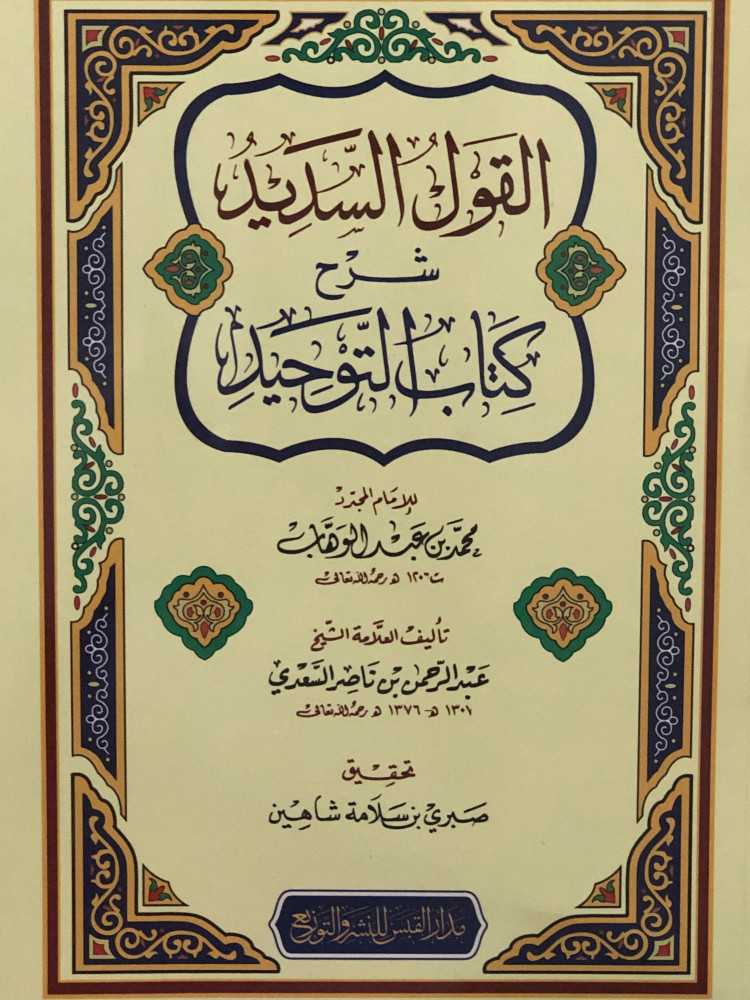 القَولُ السَّدِيدُ
شرح
كِتَابُ التَّوْحِيدِ
للإمَام المجدّد
محمَّد بن عَبد الوَهَّاب
ت ١٢٠٦ هـ رحمهُ الله تعالى
تأليف العلّامة الشّيخ
عَبد الرّحمن بن نَاصِر السَّعدي
١٣٠٧ هـ - ١٣٧٦ هـ رحمهُ الله تعالى
تحقِيق
صَبري بن سَلَامة شاهِين
مدار القبس للنشر والتوزيع